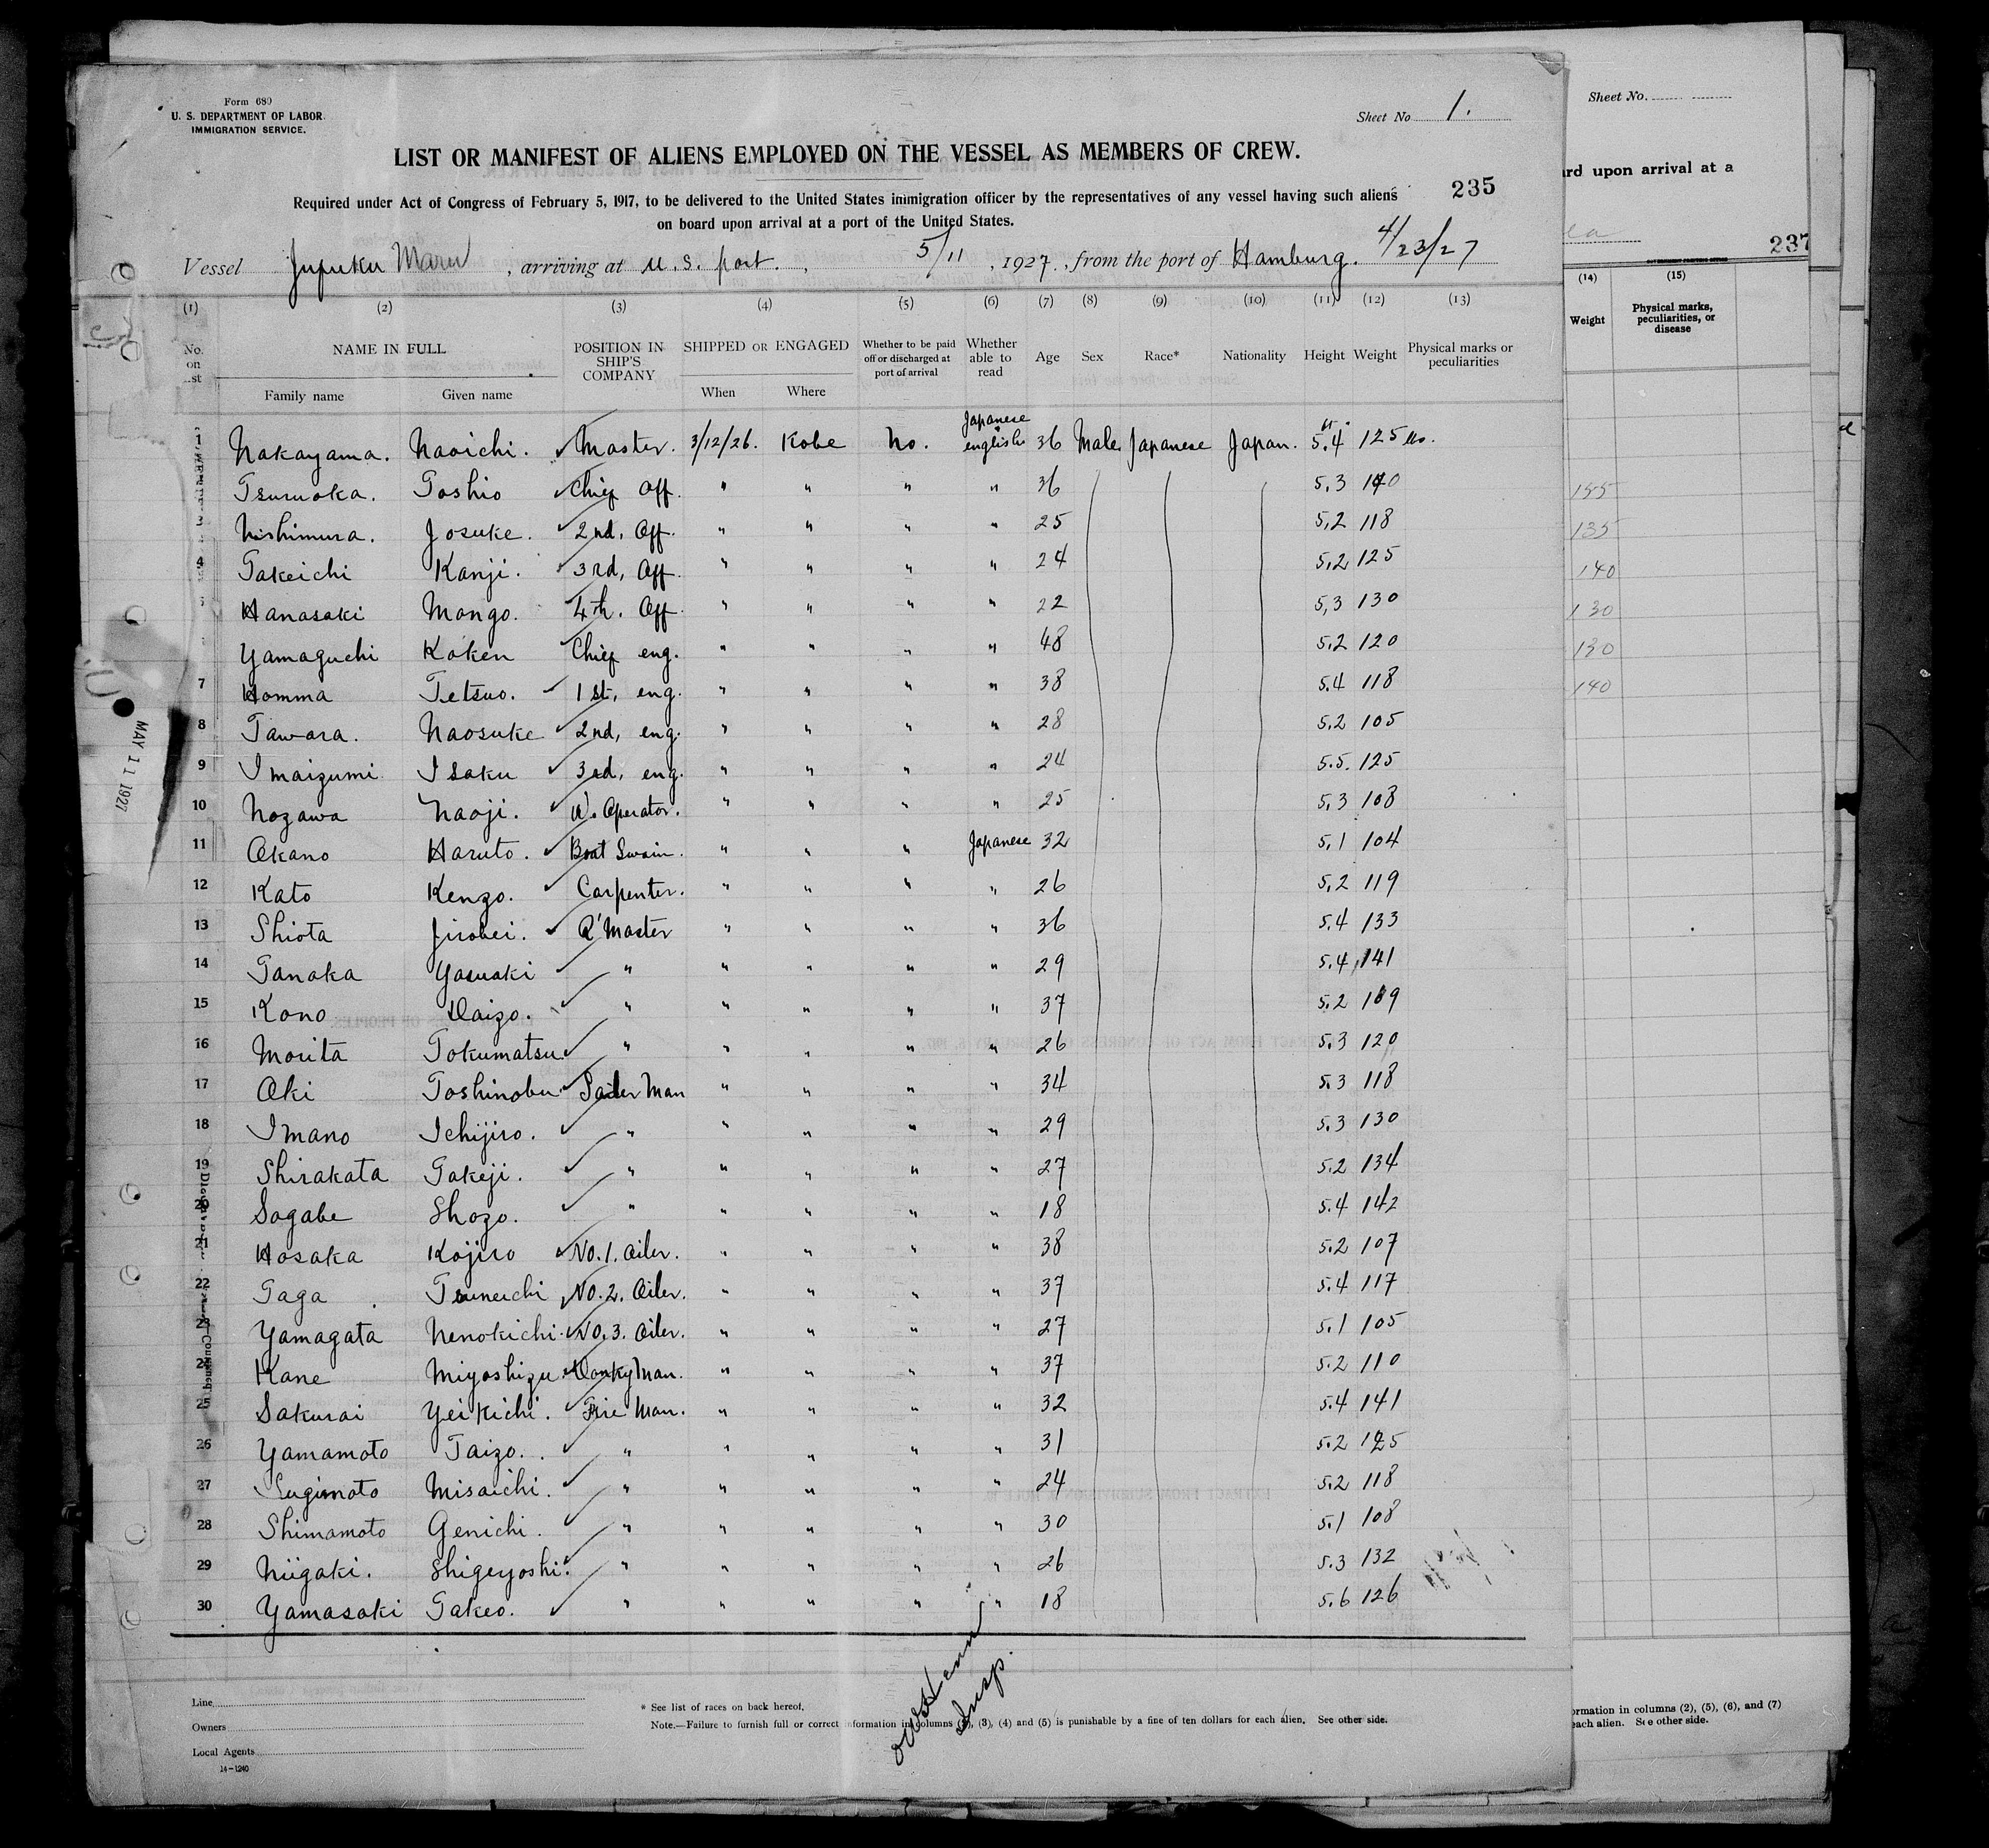 Form 680
U. S. DEPARTMENT OF LABOR
IMMIGRATION SERVICE.
Sheet No 1.
LIST OR MANIFEST OF ALIENS EMPLOYED ON THE VESSEL AS MEMBERS OF CREW.
Required under Act of Congress of February 5, 1917, to be delivered to the United States immigration officer by the representatives of any vessel having such aliens
on board upon arrival at a port of the United States.
235
Vessel Jufuku Maru, arriving at U. S. port., 5/11, 1927, from the port of Hamburg. 4/23/27
(1) (2) (3) (4) (5) (6) (7) (8) (9) (10) (11) (12) (13)
No. on NAME IN FULL POSITION IN SHIP'S COMPANY SHIPPED OR ENGAGED Whether to be paid off or discharged at port of arrival Whether able to read Age Sex Race* Nationality Height Weight Physical marks or peculiarities
Family name Given name When Where
1 Nakayama. Naoichi. Master. 3/12/26. Kobe No. Japanese english 36 Male Japanese Japan. 5.4 125 lbs.
Tsuruoka. Toshio Chief Off. " " " " 36 5.3 140
3 Nishimura. Josuke. 2nd, Off. " " " " 25 5,2 118
4 Takeichi Kanji. 3rd, Off. " " " " 24 5,2 125
Hanasaki Mongo. 4th. Off. " " " " 22 5,3 130
Yamaguchi Koken Chief eng. " " " " 48 5.2 120
7 Homma Tetsuo. 1st, eng. " " " " 38 5.4 118
8 Tawara. Naosuke 2nd, eng. " " " " 28 5.2 105
9 Imaizumi Isaku 3rd, eng. " " " " 24 5.5. 125
10 Nozawa Naoji. W. Operator. " " " " 25 5,3 108
11 Okano Haruto. Boat Swain. " " " Japanese 32 5,1 104
12 Kato Kenzo. Carpenter. " " " " 26 5,2 119
13 Shiota Jirobei. Q'Master " " " " 36 5.4 133
14 Tanaka Yasuaki " " " " " 29 5.4 141
15 Kono Daizo. " " " " " 37 5.2 109
16 Morita Tokumatsu " " " " " 26 5.3 120
17 Oki Toshinobu Sailer Man " " " " 34 5.3 118
18 Imano Ichijiro. " " " " " 29 5.3 130
19 Shirakata Takeji. " " " " " 27 5.2 134
20 Sogabe Shozo. " " " " " 18 5.4 142
21 Hosaka Kojiro No. 1. Oiler. " " " " 38 5.2 107
22 Taga Tsuneichi No. 2. Oiler. " " " " 37 5.4 117
23 Yamagata Nenokichi. No. 3. Oiler. " " " " 27 5.1 105
24 Kane Miyoshizu Donkyman. " " " " 37 5.2 110
25 Sakurai Yeikichi. Fire Man. " " " " 32 5.4 141
26 Yamamoto Taizo. " " " " " 31 5.2 125
27 Sugimoto Misaichi. " " " " " 24 5.2 118
28 Shimamoto Genichi. " " " " " 30 5.1 108
29 Niigaki. Shigeyoshi. " " " " " 26 5.3 132
30 Yamasaki Takeo. " " " " " 18 5.6 126
MAY 11 1927
Insp.
Line
Owners
Local Agents
14-1240
* See list of races on back hereof.
Note.—Failure to furnish full or correct information in columns (2), (3), (4) and (5) is punishable by a fine of ten dollars for each alien. See other side.
Sheet No.
rd upon arrival at a
237
(14) (15)
Weight Physical marks, peculiarities, or disease
155
135
140
130
130
140
ormation in columns (2), (5), (6), and (7)
each alien. See other side.